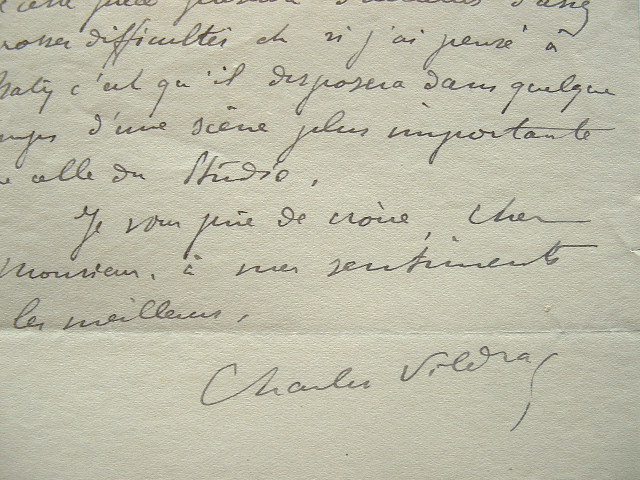 cette pièce d'assez
grosses difficultés et si j'ai pensé à
Baty c'est qu'il disposera dans quelque
temps d'une scène plus importante
que celle du Studio.
Je vous prie de croire, Cher
Monsieur, à mes sentiments
les meilleurs.
Charles Vildrac